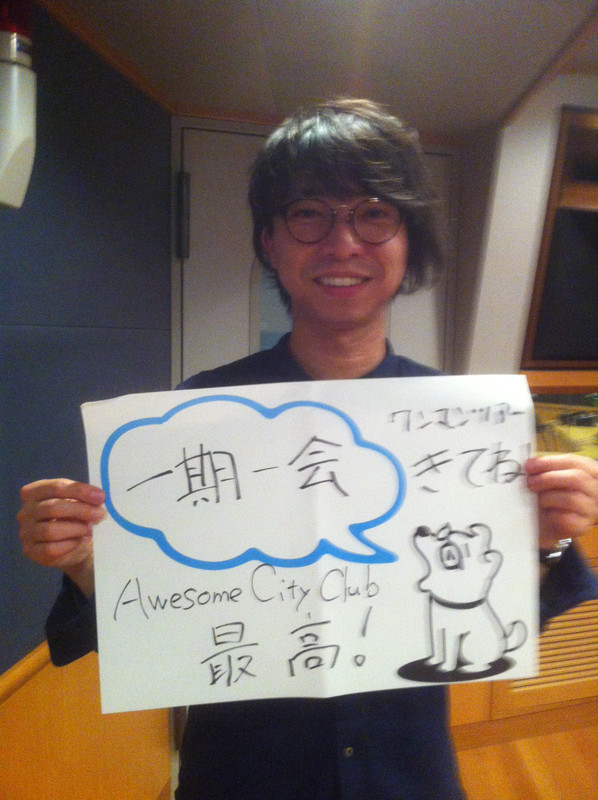 一期一会
ワンマンツアー
きてね!
Awesome City Club
最高!